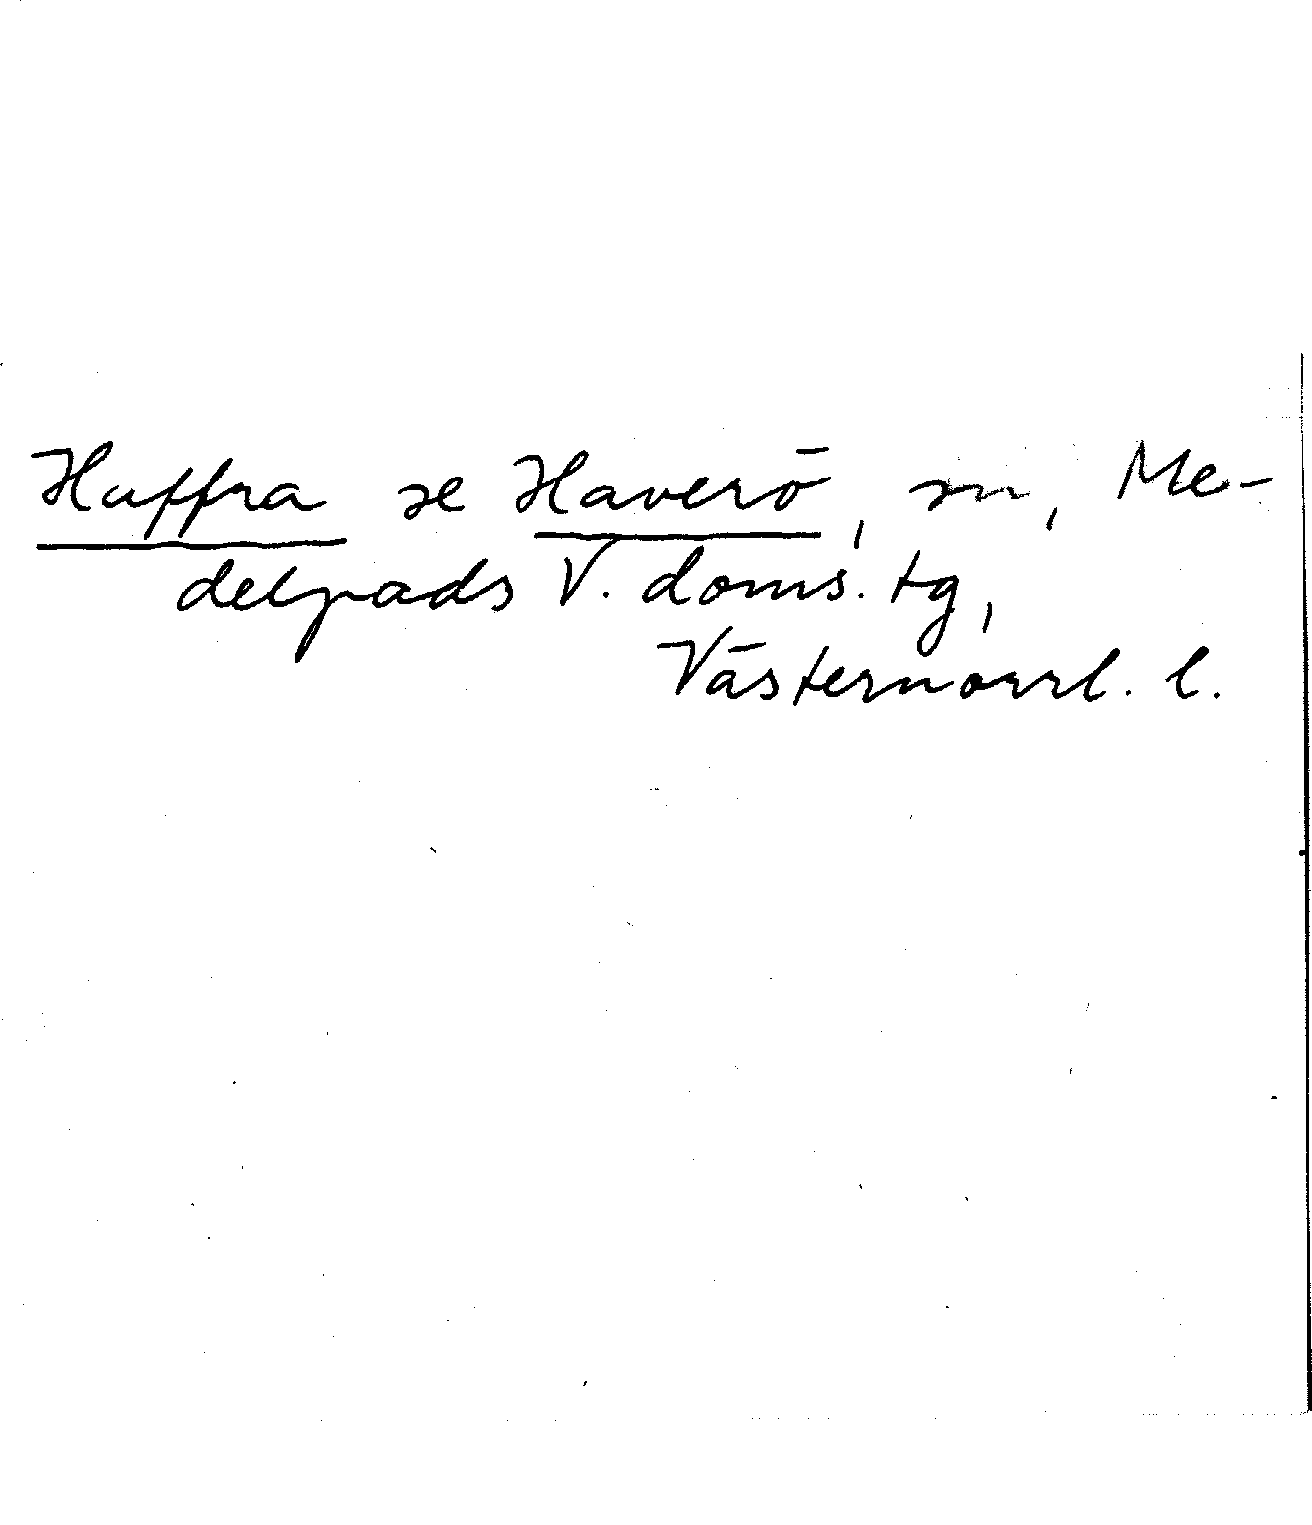 Haffra se Haverö, sn, Me-
delpads V. doms. tg,
Västernorrl. l.